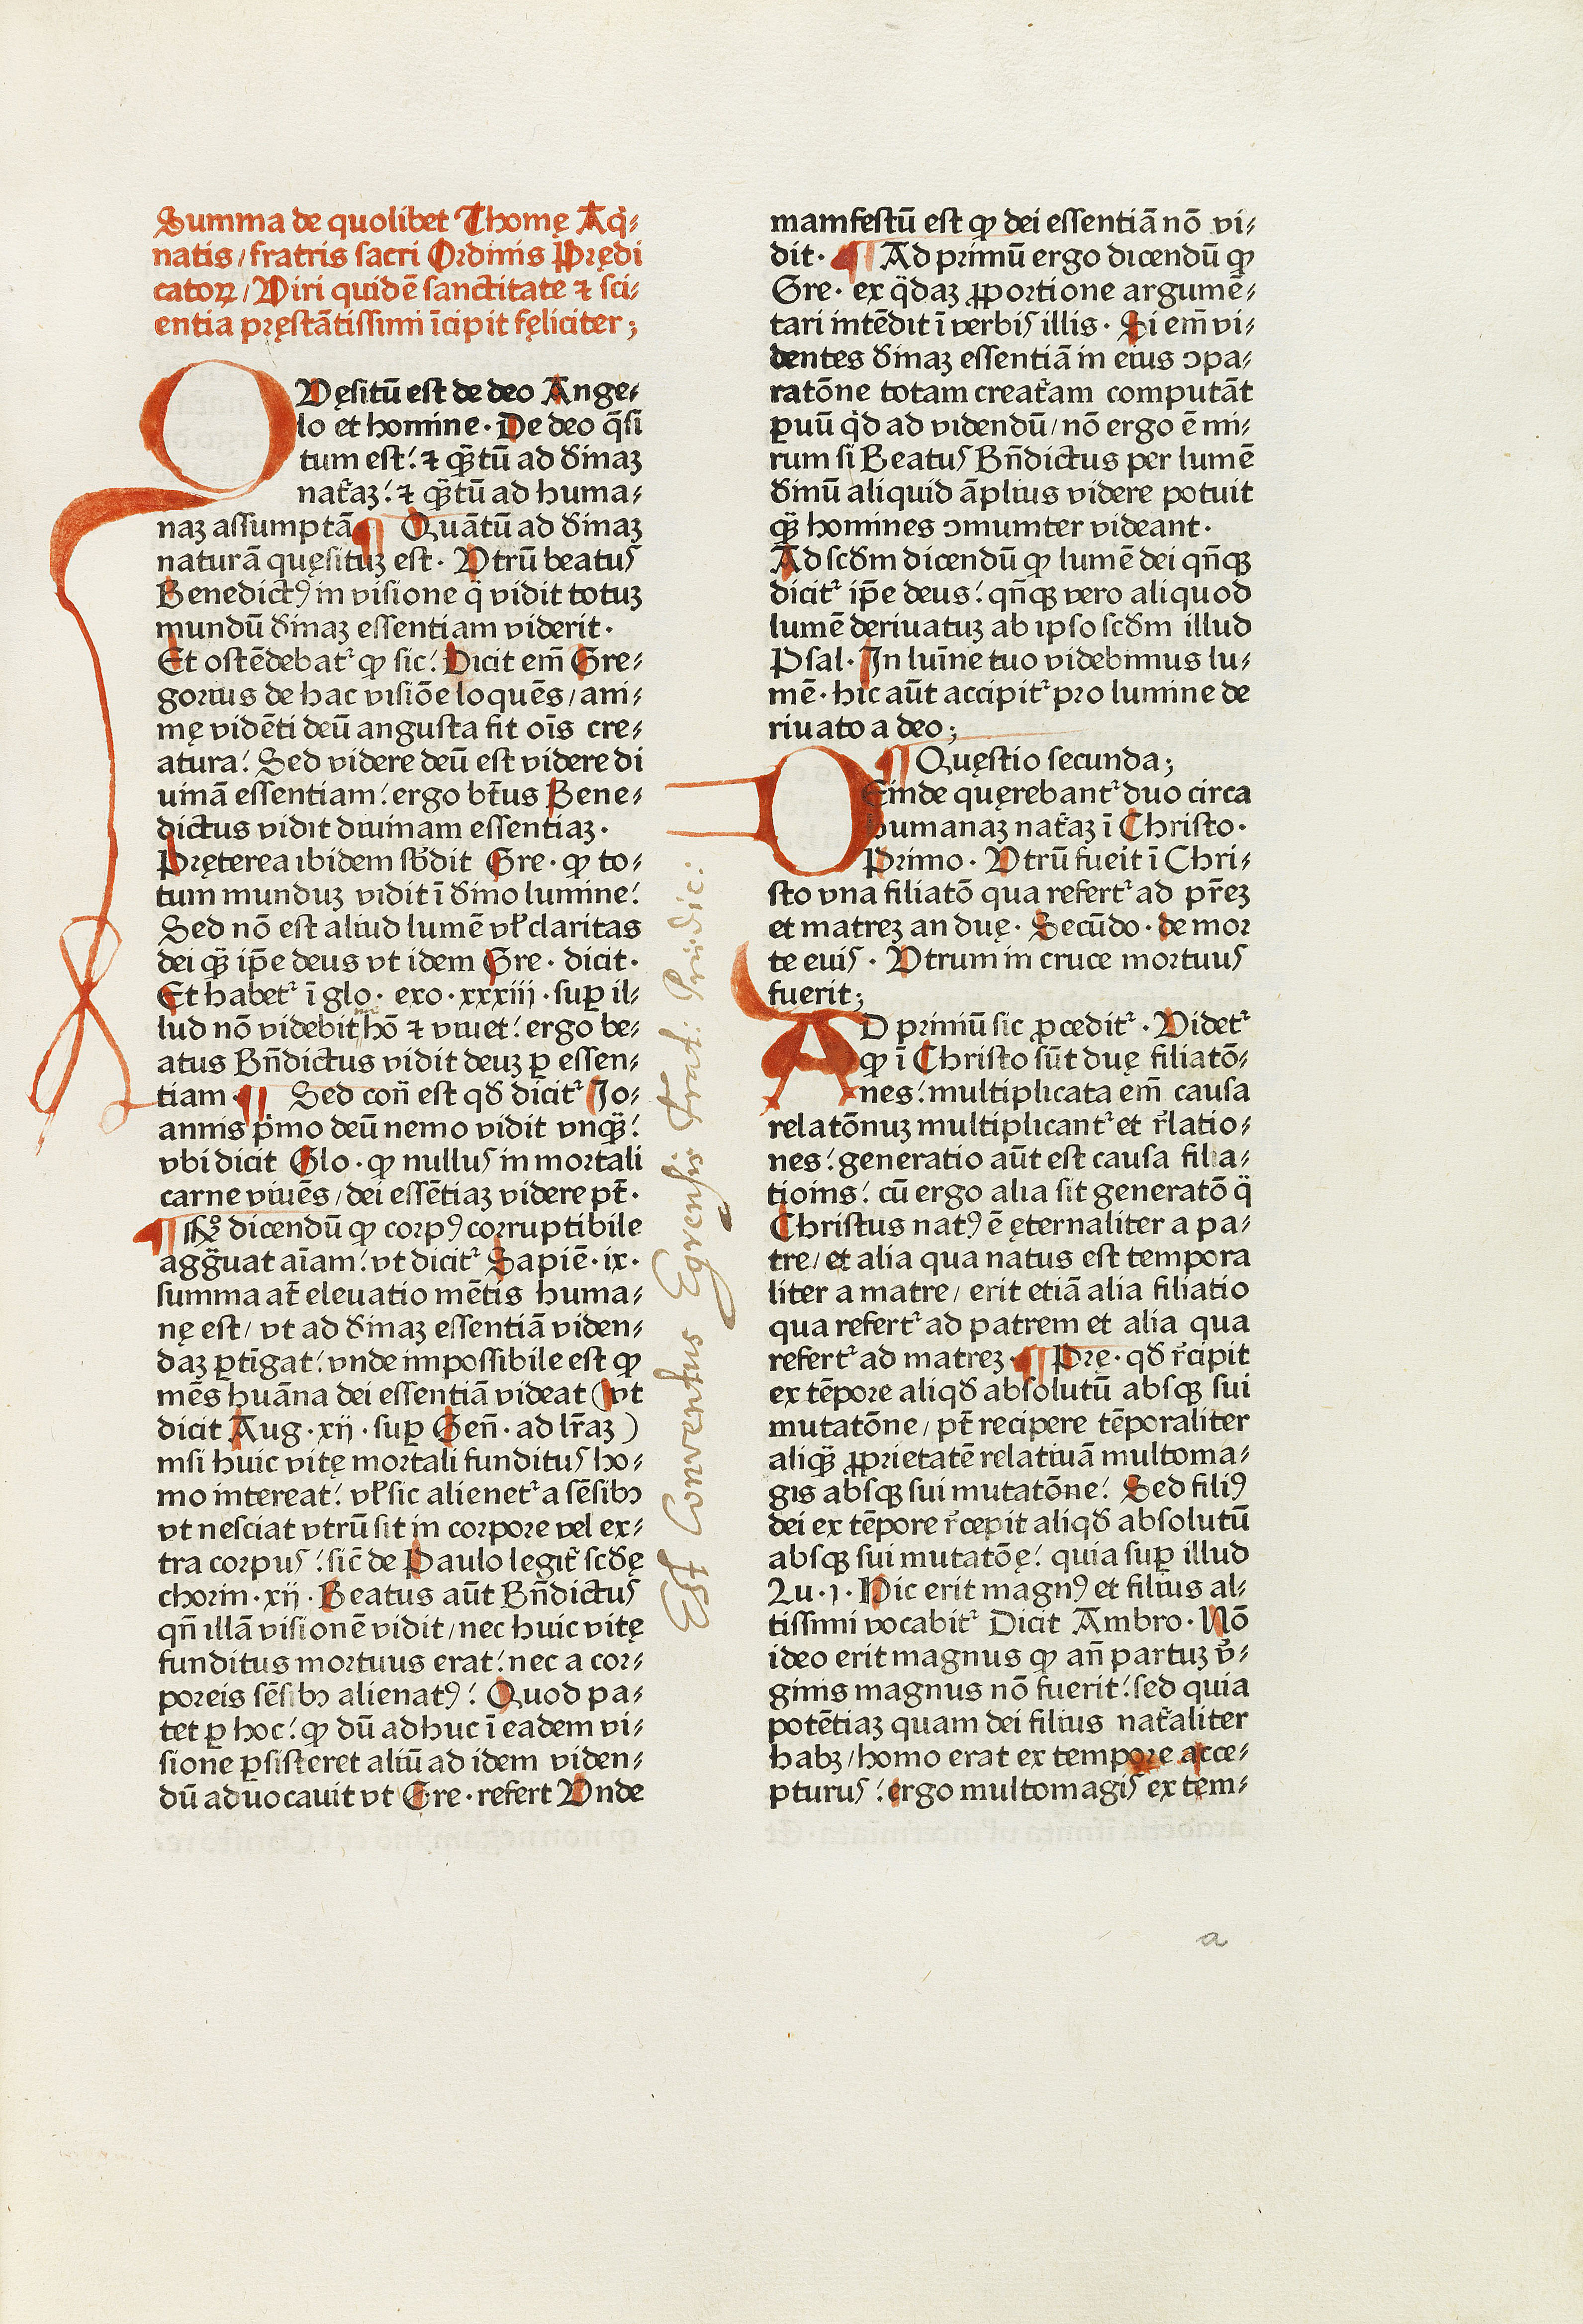 Summa de quolibet Thomę Aq̇⸗
natis/fratris sacri Ordinis Prędi
catoꝝ/Viri quidē sanctitate ⁊ sci⸗
entia pręstātissimi īcipit fęliciter;
QVęsitū est de deo Ange⸗
lo et homine· De deo q̄si
tum est: ⁊ qꝫ̄tū ad d̄inaꝫ
nat̄aꝫ: ⁊ qꝫ̄tū ad huma⸗
naꝫ assumptā ¶ Quātū ad d̄inaꝫ
naturā quęsituꝫ est· Vtrū beatus
Benedictꝰ in visione q̄ vidit totuꝫ
mundū d̄inaꝫ essentiam viderit·
Et ostēdebat᷑ ꝙ sic: Dicit em̄ Gre⸗
gorius de hac visiōe loquēs/ani⸗
mę vidēti deū angusta fit oīs cre⸗
atura: Sed videre deū est videre di
uinā essentiam: ergo bt̄us Bene⸗
dictus vidit diuinam essentiaꝫ·
Pręterea ibidem sb̄dit Gre· ꝙ to⸗
tum munduꝫ vidit ī d̄ino lumine:
Sed nō est aliud lumē vl̄ claritas
dei qꝫ̄ ip̄e deus vt idem Gre· dicit·
Et habet᷑ ī glo· exo·xxxiij·suꝑ il⸗
lud nō videbit me hō ⁊ viuet: ergo be⸗
atus Bn̄dictus vidit deuꝫ ꝑ essen⸗
tiam· ¶ Sed con̄ est qd̄ dicit᷑ Jo⸗
annis p̄mo deū nemo vidit vnqꝫ̄:
vbi dicit Glo·ꝙ nullus in mortali
carne viuēs/dei essētiaꝫ videre pt̄·
¶ Rꝰ dicendū ꝙ corpꝰ corruptibile
agḡuat aīam: vt dicit᷑ Sapiē·ix·
summa at̄ eleuatio mētis huma⸗
nę est/ vt ad d̄inaꝫ essentiā viden⸗
daꝫ ꝑtīgat: vnde impossibile est ꝙ
mēs huāna dei essentiā videat (vt
dicit Aug·xij·suꝑ Gen̄·ad lr̄aꝫ)
nisi huic vitę mortali funditus ho⸗
mo intereat: vl̄ sic alienet᷑ a sēsibꝫ
vt nesciat vtrū sit in corpore vel ex⸗
tra corpus: sic̄ de Paulo legit᷑ scd̄ę
chorin·xij· Beatus aūt Bn̄dictus
qn̄ illā visionē vidit/nec huic vitę
funditus mortuus erat: nec a cor⸗
poreis sēsibꝫ alienatꝰ: Quod pa⸗
tet ꝑ hoc: ꝙ dū adhuc ī eadem vi⸗
sione ꝑsisteret aliū ad idem viden⸗
dū aduocauit vt Gre·refert Vnde
Est Conventus Egrensis Frat: Prædic:
manifestū est ꝙ dei essentiā nō vi⸗
dit· ¶ Ad primū ergo dicendū ꝙ
Gre· ex q̄daꝫ ꝓportione argumē⸗
tari intēdit ī verbis illis· Si em̄ vi⸗
dentes d̄inaꝫ essentiā in eius ɔpa⸗
ratōne totam creat̄am computāt
ꝑuū q̇d ad videndū/nō ergo ē mi⸗
rum si Beatus Bn̄dictus per lumē
d̄inū aliquid āplius videre potuit
qꝫ̄ homines ɔmuniter videant·
Ad scd̄m dicendū ꝙ lumē dei qn̄qꝫ
dicit᷑ ip̄e deus: qn̄qꝫ vero aliquod
lumē deriuatuꝫ ab ipso scd̄m illud
Psal·In luīne tuo videbimus lu⸗
mē·hic aūt accipit᷑ pro lumine de
riuato a deo;
¶ Quęstio secunda;
DEinde quęrebant᷑ duo circa
humanaꝫ nat̄aꝫ ī Christo·
Primo· Vtrū fueit ī Chri⸗
sto vna filiatō qua refert᷑ ad pr̄eꝫ
et matreꝫ an duę· Secūdo·de mor
te euis· Vtrum in cruce mortuus
fuerit;
AD primū sic ꝓcedit᷑· Videt᷑
ꝙ ī Christo sūt duę filiatō⸗
nes: multiplicata em̄ causa
relatōnuꝫ multiplicant᷑ et r̄latio⸗
nes: generatio aūt est causa filia⸗
tioins: cū ergo alia sit generatō q̄
Christus natꝰ ē ęternaliter a pa⸗
tre/et alia qua natus est tempora
liter a matre/ erit etiā alia filiatio
qua refert᷑ ad patrem et alia qua
refert᷑ ad matreꝫ· ¶ Prę·qd̄ r̄cipit
ex tēpore aliqd̄ absolutū absqꝫ sui
mutatōne/pt̄ recipere tēporaliter
aliqꝫ̄ ꝓprietatē relatiuā multoma⸗
gis absqꝫ sui mutatōne: Sed filiꝰ
dei ex tēpore r̄cepit aliqd̄ absolutū
absqꝫ sui mutatōę: quia suꝑ illud
Lu·j·Hic erit magnꝰ et filius al⸗
tissimi vocabit᷑ Dicit Ambro·Nō
ideo erit magnus ꝙ an̄ partuꝫ v̄⸗
ginis magnus nō fuerit: sed quia
potētiaꝫ quam dei filius nat̄aliter
habꝫ/homo erat ex tempore acce⸗
pturus: ergo multomagis ex tem⸗
a